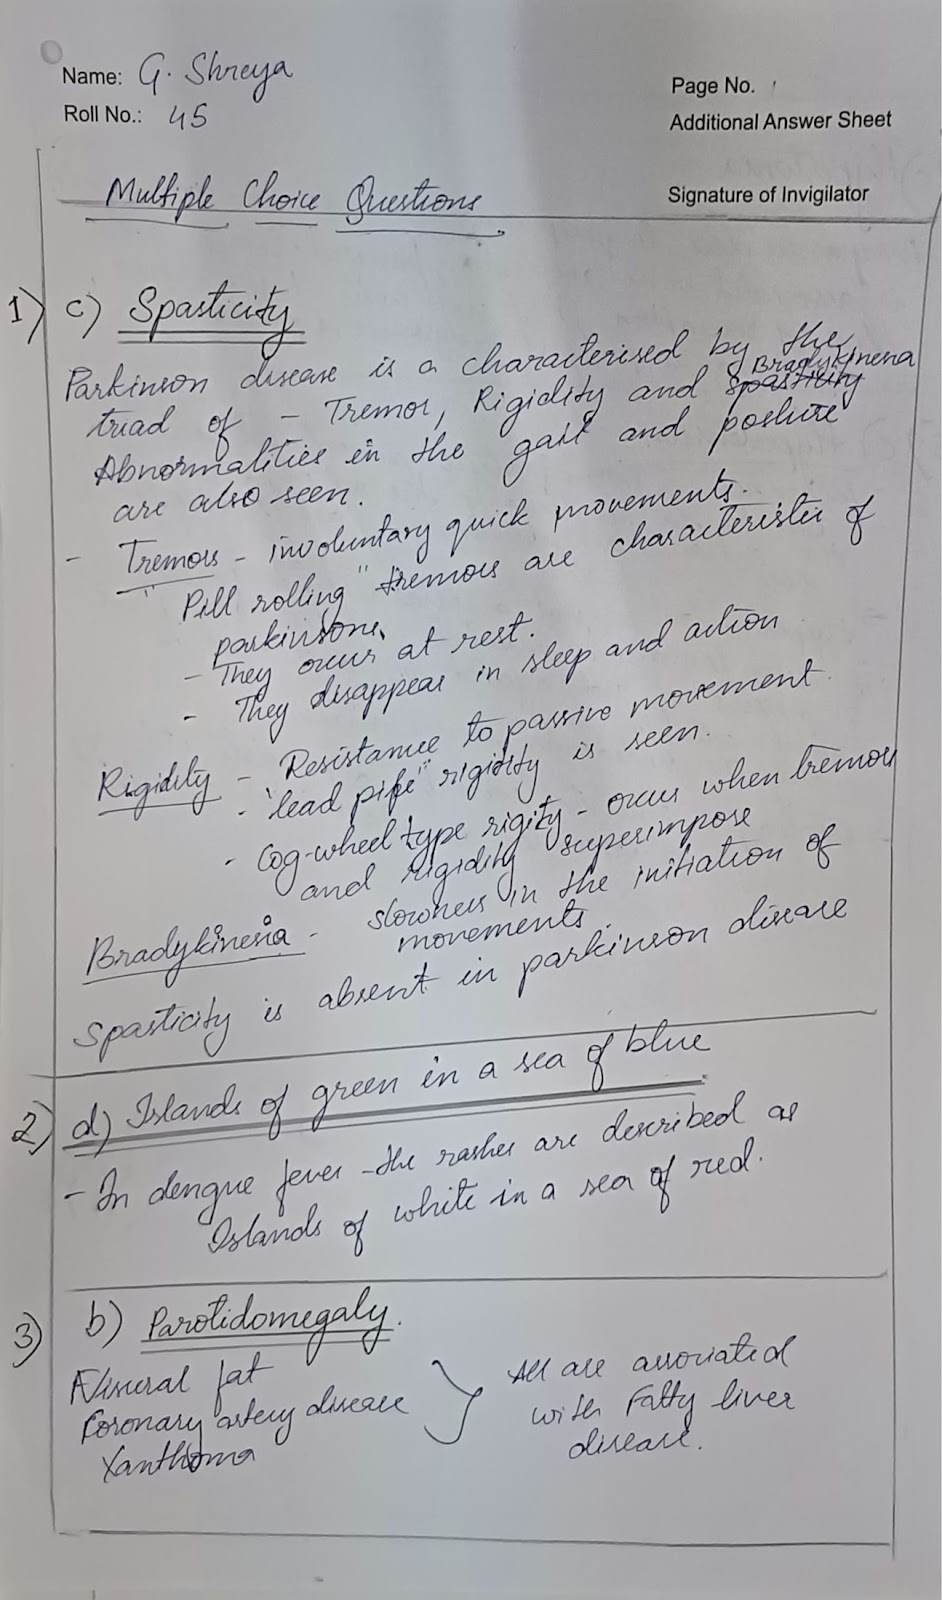 Name: G. Shreya
Page No. 1
Roll No.: 45
Additional Answer Sheet
Multiple Choice Questions
Signature of Invigilator
1) c) Spasticity
Parkinson disease is a characterised by the
triad of - Tremor, Rigidity and spasticity Bradykinesia
Abnormalities in the gait and posture
are also seen.
- Tremors - involuntary quick movements.
"Pill rolling" tremors are characteristic of
parkinsons.
- They occur at rest.
- They disappear in sleep and action
Rigidity - Resistance to passive movement.
- "lead pipe" rigidity is seen.
- Cog-wheel type rigity - occurs when tremors
and rigidity superimpose
Bradykinesia - slowness in the initiation of
movements
Spasticity is absent in parkinson disease
2) d) Islands of green in a sea of blue
- In dengue fever - the rashes are described as
Islands of white in a sea of red.
3) b) Parotidomegaly.
Visceral fat
Coronary artery disease
Xanthoma
All are associated
with Fatty liver
disease.